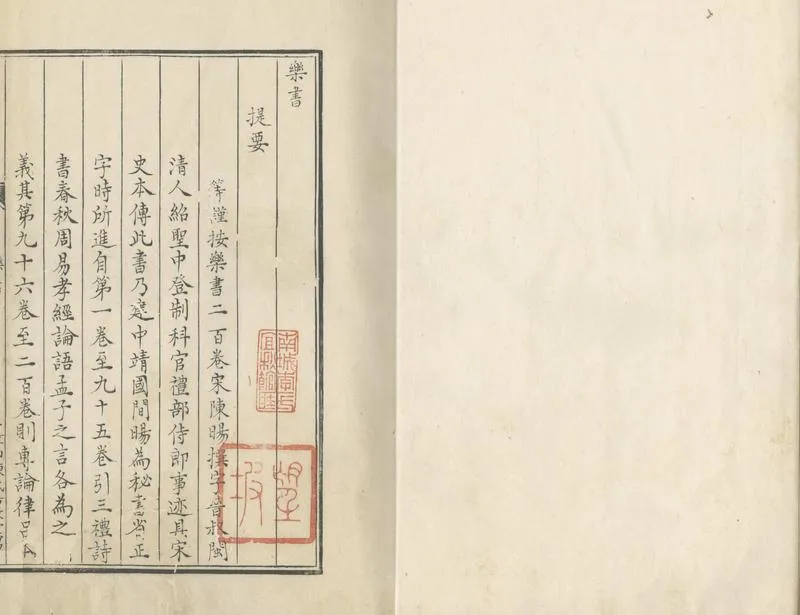 樂書
提要
等謹按樂書二百卷宋陳暘撰字晉叔閩
清人紹聖中登制科官禮部侍郎事迹具宋
史本傳此書乃建中靖國間暘為秘書省正
字時所進自第一卷至九十五卷引三禮詩
書春秋周易孝經論語孟子之言各為之
義其第九十六卷至二百卷則專論律呂本
南城李氏
宜秋館藏